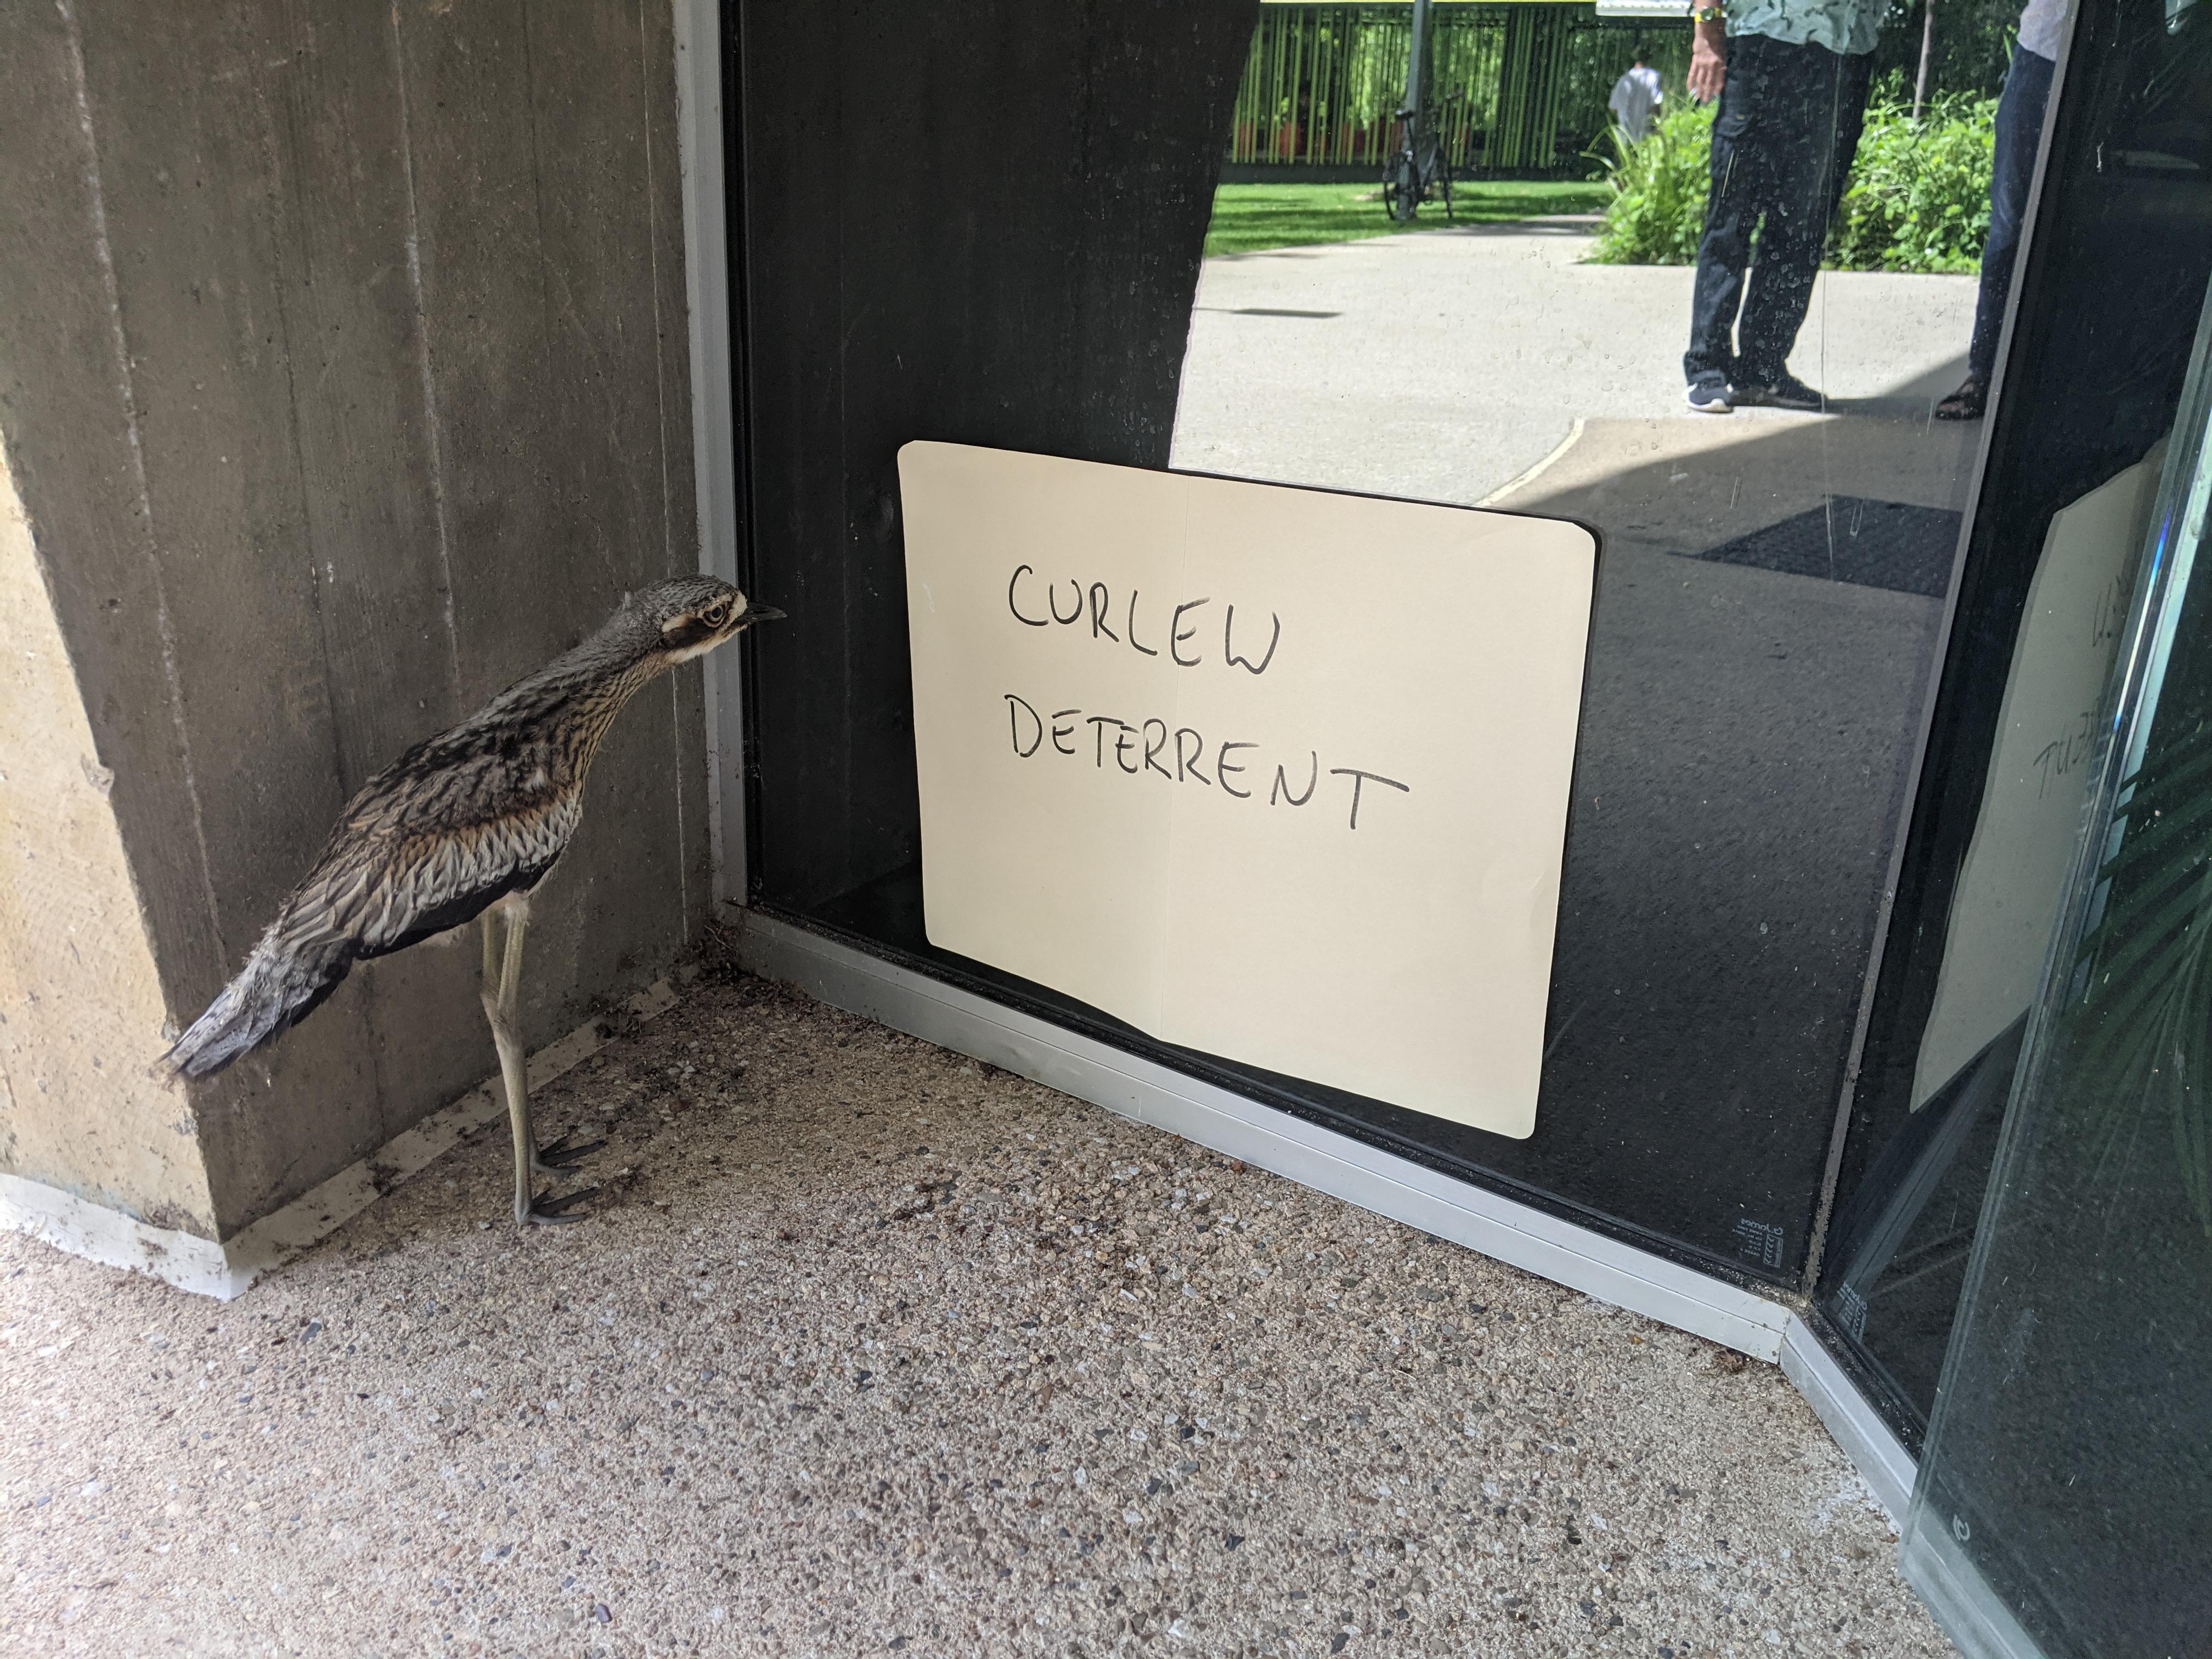 CURLEW
DETERRENT